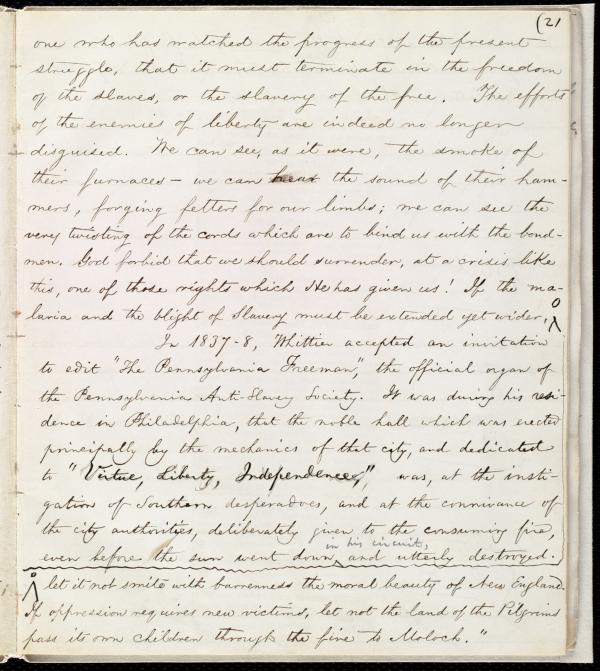 (21
one who has watched the progress of the present
struggle, that it must terminate in the freedom
of the slaves, or the slavery of the free. The efforts
of the enemies of liberty are indeed no longer
disguised. We can see, as it were, the smoke of
their furnaces – we can hear the sound of their ham-
mers, forging fetters for our limbs; we can see the
very twisting of the cords which are to bind us with the bond-
men. God forbid that we should surrender, at a crisis like
this, one of those rights which He has given us! If the ma-
laria and the blight of Slavery must be extended yet wider,
In 1837-8, Whittier accepted an invitation
to edit "The Pennsylvania Freeman", the official organ of
the Pennsylvania Anti-Slavery Society. It was during his resi-
dence in Philadelphia, that the noble hall which was erected
principally by the mechanics of that city, and dedicated
to "Virtue, Liberty, Independence," was, at the insti-
gation of Southern desperadoes, and at the connivance of
the city authorities, deliberately given to the consuming fire,
in his circuit,
even before the sun went down, and utterly destroyed.
let it not smite with barrenness the moral beauty of New England.
If oppression requires new victims, let not the land of the Pilgrims
pass its own children through the fire to Moloch."